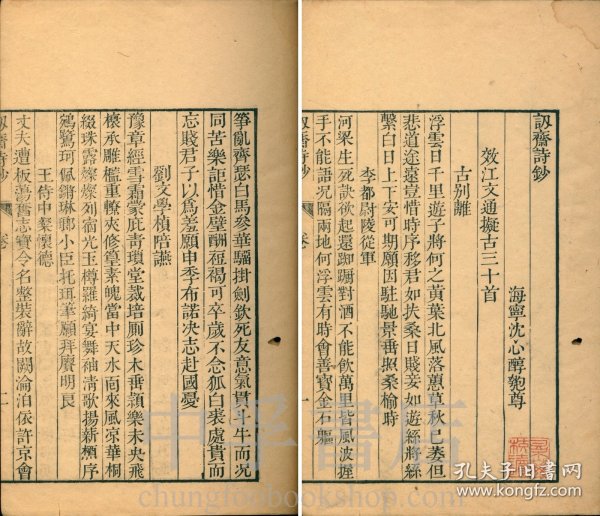 訒齋詩鈔
海寧沈心醇匏尊
效江文通擬古三十首
古別離
浮雲日千里遊子將何之黃葉北風落蕙草秋已萎但
悲道途遠豈惜時序移君如扶桑日賤妾如遊絲將絲
繫白日上下安可期願因駐馳景垂照桑榆時
李都尉陵從軍
河梁生死訣欲起還踟躕對酒不能飲萬里皆風波握
手不能語況隔兩地何浮雲有時會善寶金石軀
訒齋詩鈔
卷
一
箏亂齊瑟白馬參華騮掛劍欽死友意氣貫斗牛而況
同苦樂詎惜金璧酬短褐可卒歲不念狐白裘處貴而
忘賤君子以爲羞願申季布諾決志赴國憂
劉文學楨陪讌
豫章經雪霜蒙庇青瑣堂栽培厠珍木垂穎樂未央飛
榱承雕檻重轑夾修章素魄當中天水雨來風凉華桐
綴珠露燦燦列宿光玉樽羅綺宴舞袖淸歌揚薪槱序
鵷鷺珂佩鏘琳瑯小臣托珥筆願拜賡明良
王侍中粲懷德
丈夫遭板蕩舊志寶令名整裝辭故闕淪泊依許京會
訒齋詩鈔
卷
二
中華書店
chungfoobookshop.com
孔夫子旧书网
www.kongfz.com